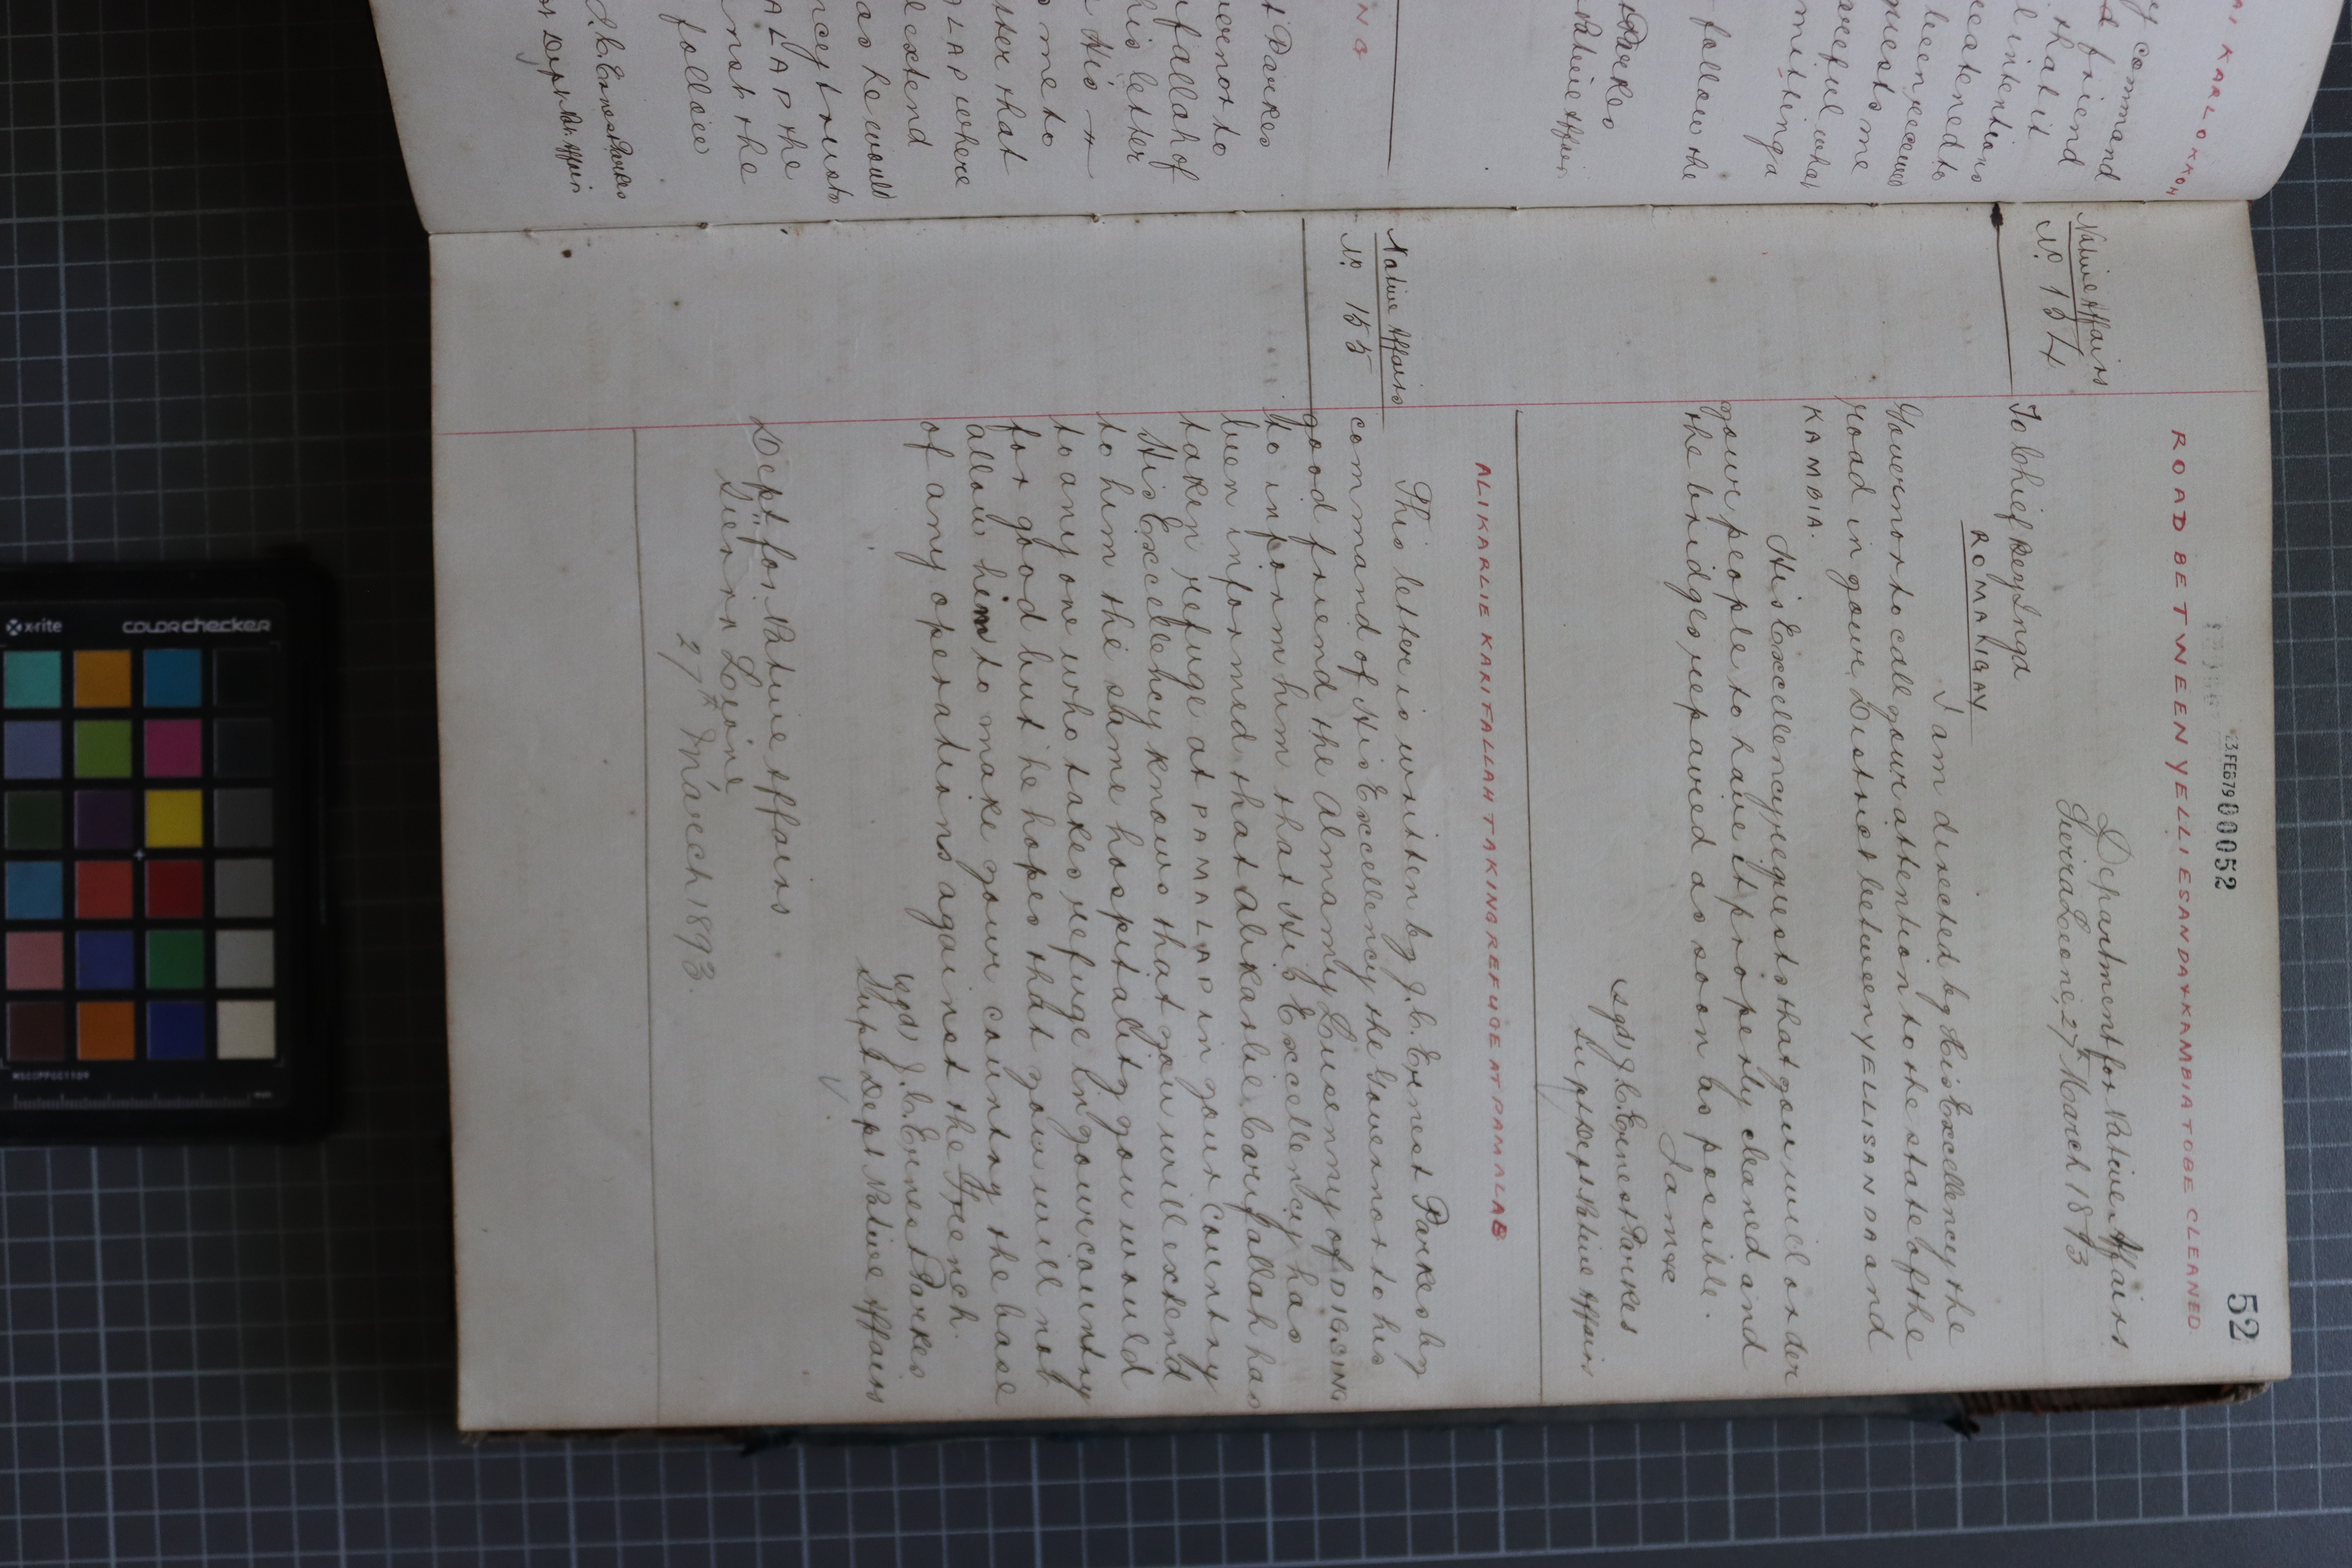 52
13 FEB 79 00052
ROAD BETWEEN YELLIESANDA & KAMBIA TO BE CLEANED.
Native Affairs
No. 154
Department for Native Affairs
Sierra Leone, 27th March 1893
To Chief Bey Inga
ROMAKIGAY
I am directed by His Excellency the
Governor to call your attention to the state of the
road in your District between YELLISANDA and
KAMBIA.
His Excellency requests that you will order
your people to have it properly cleaned and
the bridges repaired as soon as possible.
I am &c
sgd J. C. Ernest Parkes
Supt Dept Native Affairs
ALIKARLIE KARIFALLAH TAKING REFUGE AT PAMALAB
Native Affairs
No. 155
This letter is written by J. C. Ernest Parkes by
command of His Excellency the Governor to his
good friend the Almamy Lusenny of DIGSING
to inform him that His Excellency has
been informed that Alikarlie Carifallah has
taken refuge at PAMALAP in your country
His Excellency knows that you will extend
to him the same hospitality you would
to any one who takes refuge in your country
for good but he hopes that you will not
allow him to make your country the base
of any operations against the French.
sgd J. C. Ernest Parkes
Supt Dept Native Affairs
Dept for Native Affairs
Sierra Leone
27th March 1893.
AI KARLOKKOH
y command
d friend
that it
l intentions
reatened to
been received
quests me
areful what
mitting a
follow the
Parkes
Native Affairs
NG
t Parkes
vernor to
ifallah of
his letter
His
me to
tter that
LAP where
extend
as he would
ncy trusts
ALAP the
nst the
follow
J. C. Ernest Parkes
Dept Nat. Affairs
x-rite
colorchecker
MSCCPPCC1109